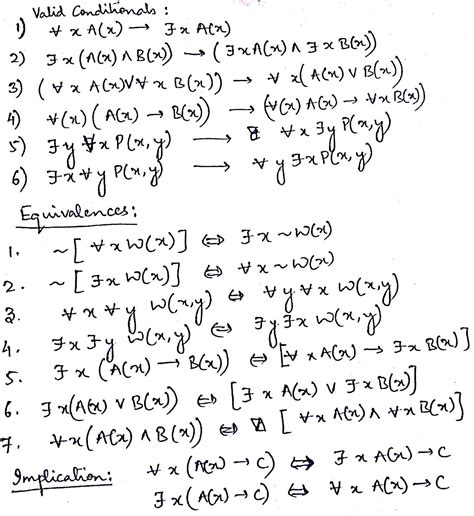 Valid Conditionals :
1) ∀ x A(x) → ∃ x A(x)
2) ∃ x (A(x) ∧ B(x)) → (∃ x A(x) ∧ ∃ x B(x))
3) (∀ x A(x) ∨ ∀ x B(x)) → ∀ x (A(x) ∨ B(x))
4) ∀(x) (A(x) → B(x)) → (∀(x) A(x) → ∀x B(x))
5) ∃ y ∀ x P(x,y) → ∀ x ∃ y P(x,y)
6) ∃ x ∀ y P(x,y) → ∀ y ∃ x P(x,y)
Equivalences :
1. ~[∀ x W(x)] ⇔ ∃ x ~ W(x)
2. ~[∃ x W(x)] ⇔ ∀ x ~ W(x)
3. ∀ x ∀ y W(x,y) ⇔ ∀ y ∀ x W(x,y)
4. ∃ x ∃ y W(x,y) ⇔ ∃ y ∃ x W(x,y)
5. ∃ x (A(x) → B(x)) ⇔ [∀ x A(x) → ∃ x B(x)]
6. ∃ x (A(x) ∨ B(x)) ⇔ [∃ x A(x) ∨ ∃ x B(x)]
7. ∀ x (A(x) ∧ B(x)) ⇔ [∀ x A(x) ∧ ∀ x B(x)]
Implication : ∀ x (A(x) → C) ⇔ ∃ x A(x) → C
∃ x (A(x) → C) ⇔ ∀ x A(x) → C